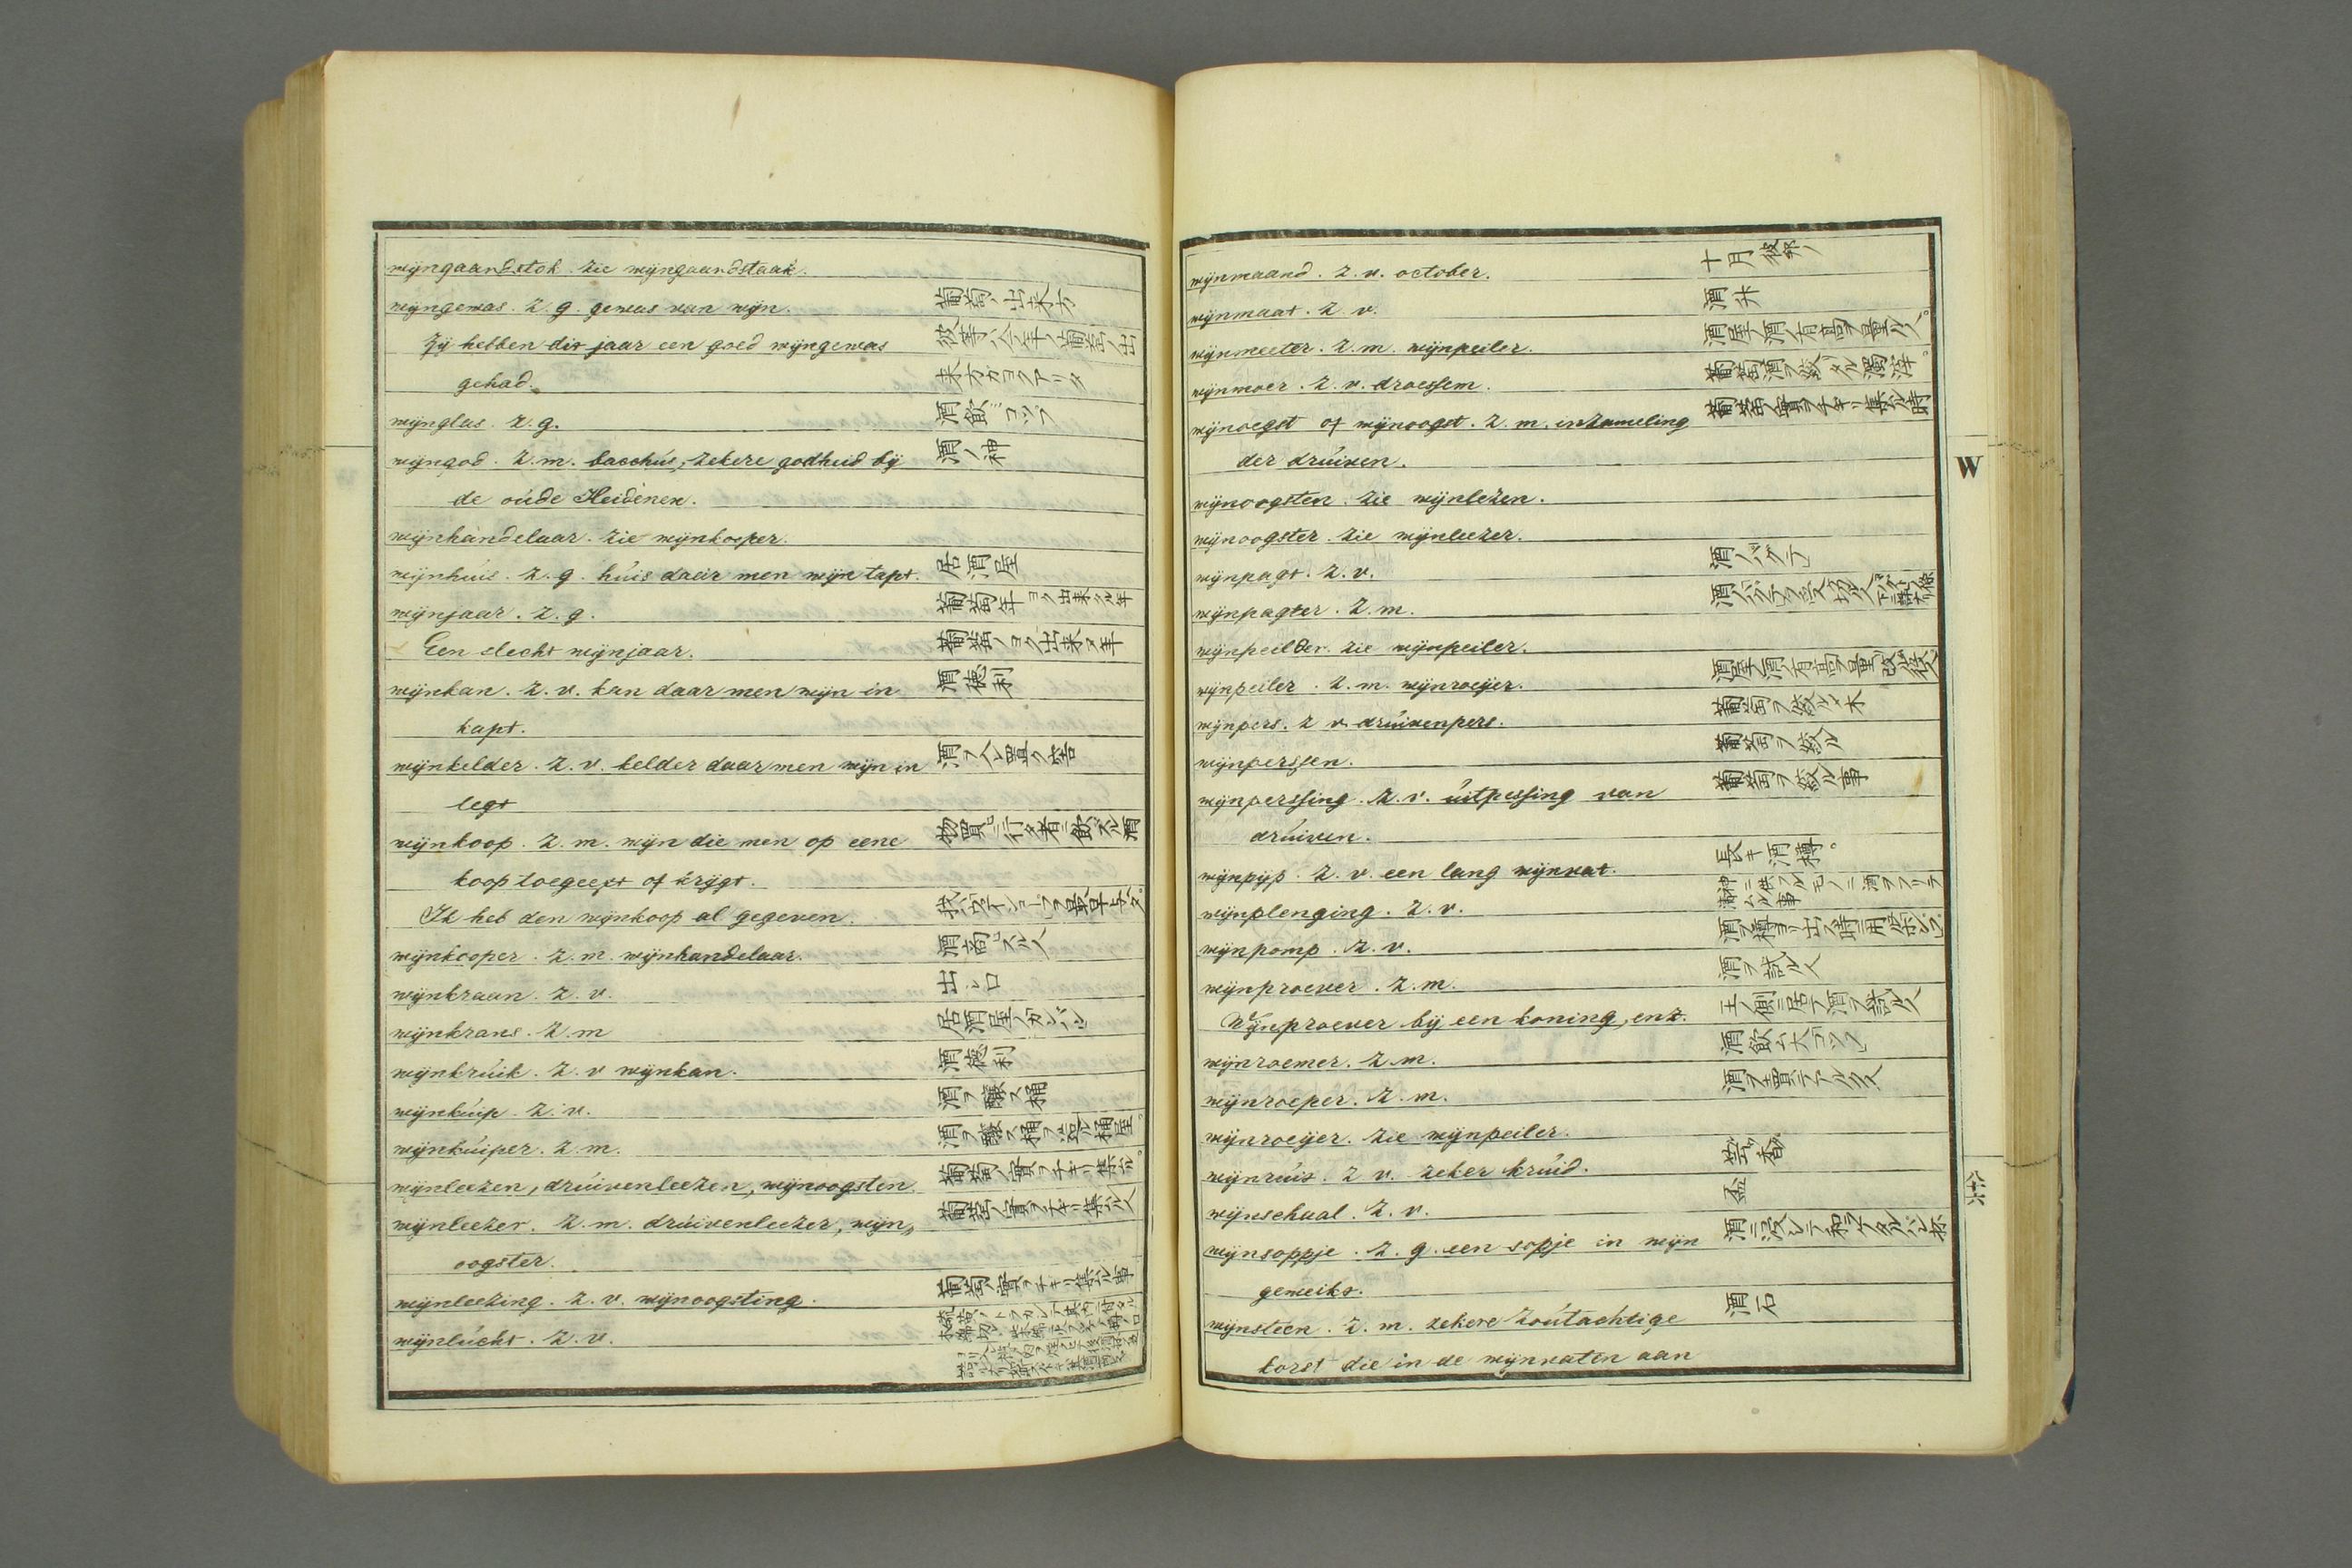 wijngaardstok. zie wijngaardstaak.
wijngewas. z. g. gewas van wijn. 葡萄ノ出来方
Zij hebben dit jaar een goed wijngewas 彼等ハ今年ノ葡萄ノ出
gehad. 来方ガヨクアリタ
wijnglas. z. g. 酒飲コップ
wijngod. z. m. bacchús, zekere godheid bij 酒ノ神
de oúde Heidenen.
wijnhandelaar. zie wijnkooper.
wijnhúis. z. g. húis daar men wijn tapt. 居酒屋
wijnjaar. z. g. 葡萄年 ヨク出来タル年
Een slecht wijnjaar. 葡萄ノヨク出来ヌ年
wijnkan. z. v. kan daar men wijn in 酒徳利
tapt.
wijnkelder. z. v. kelder daar men wijn in 酒ヲ入レ置ク窖
legt
wijnkoop. z. m. wijn die men op eene 物買ニ行タ者ニ飲スル酒
koop toegeeft of krijgt.
Ik heb den wijnkoop al gegeven.
wijnkooper. z. m. wijnhandelaar. 酒商スル人
wijnkraan. z. v. 出シ口
wijnkrans. z. m 居酒屋ノカンバン
wijnkrúik. z. v wijnkan. 酒徳利
wijnkúip. z. v. 酒ヲ醸ス桶
wijnkúiper. z. m. 酒ヲ醸ス桶ヲ造ル桶屋。
wijnleezen, drúivenleezen, wijnoogsten. 葡萄ノ實ヲチギリ集ル。
wijnleezer. z. m. drúivenleezer, wijn„ 葡萄ノ實ヲチギリ集ル人
oogster.
wijnleezing. z. v. wijnoogsting. 葡萄ノ實ヲチギリ集ル事
wijnlúcht. z. v.
wijnmaand. z. v. october. 十月
wijnmaat. z. v. 酒升
wijnmeeter. z. m. wijnpeiler. 酒屋ノ酒ノ有高ヲ量ル人。
wijnmoer. z. v. droessem. 葡萄酒ヲ絞タル濁滓。
wijnoegst of wijnoogst. z. m. inzameling 葡萄ノ實ヲチギリ集ル時
der drúiven.
wijnoogsten. zie wijnlezen.
wijnoogster. zie wijnleezer.
wijnpagt. z. v.
wijnpagter. z. m.
wijnpeilder. zie wijnpeiler.
wijnpeiler. z. m. wijnroeijer. 酒屋ノ酒ノ有高ヲ量改ル役人
wijnpers. z v. drúivenpers. 葡萄ヲ絞ル木
wijnperssen. 葡萄ヲ絞ル
wijnperssing. z. v. úitpessing van 葡萄ヲ絞ル事
drúiven.
wijnpijp. z. v. een lang wijnvat. 長キ酒樽。
wijnplenging. z. v.
wijnpomp. z. v. 酒ヲ樽ヨリ出ス時ニ用ルポンプ
wijnproever. z. m. 酒ヲ試ル人
Wijnproever bij een koning, enz. 王ノ側ニ居テ酒ヲ試ル人
wijnroemer. z. m. 酒飲ム大コップ
wijnroeper. z. m.
wijnroeijer. zie wijnpeiler.
wijnrúit. z v. zeker krúid. 芸香。
wijnschaal. z. v. 盃
wijnsoppje. z. g. een sopje in wijn
geweikt.
wijnsteen. z. m. zekere zoútachtige 酒石
korst die in de wijnvaten aan
W